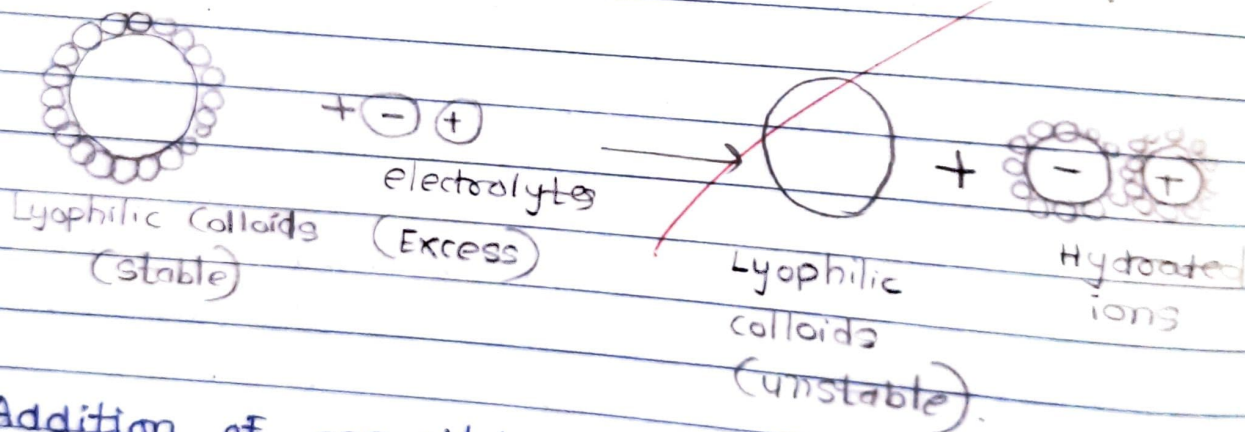 + - +
electrolytes
Lyophilic Colloids
(Excess)
(stable)
+ - +
Lyophilic
colloids
(unstable).
Hydrated
ions
Addition of